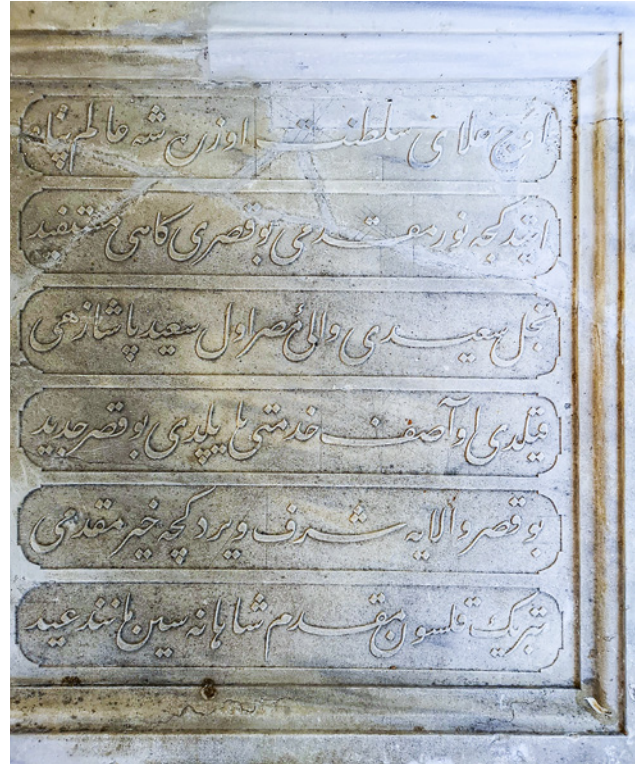 اوج علای سلطنت اوزره شه عالم پناه
ایتدکجه نور مقدمی بو قصری کاهی مستفید
نجل سعیدی والئ مصر اول سعید پاشا زهی
قیلدی او آصف خدمتی یاپلدی بو قصر جدید
بو قصر والایه شرف ویردکچه خیر مقدمی
تبریک قلسون مقدم شاهانه سین مانند عید